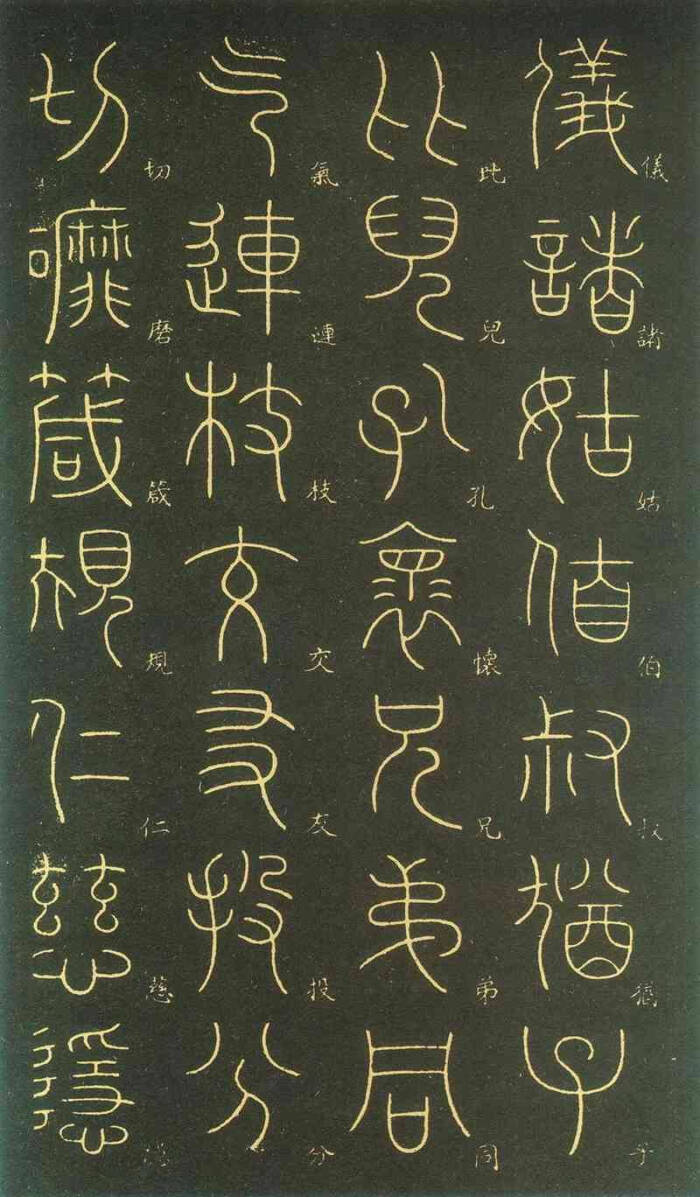 儀諸姑伯叔猶子
儀諸姑伯叔猶子
比兒孔懷兄弟同
比兒孔懷兄弟同
气連枝交友投分
氣連枝交友投分
切磨箴規仁慈隱
切磨箴規仁慈隱